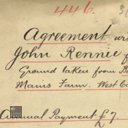 446.
Agreement
John Rennie
Ground taken from
Mains Farm. West
Annual Payment £7